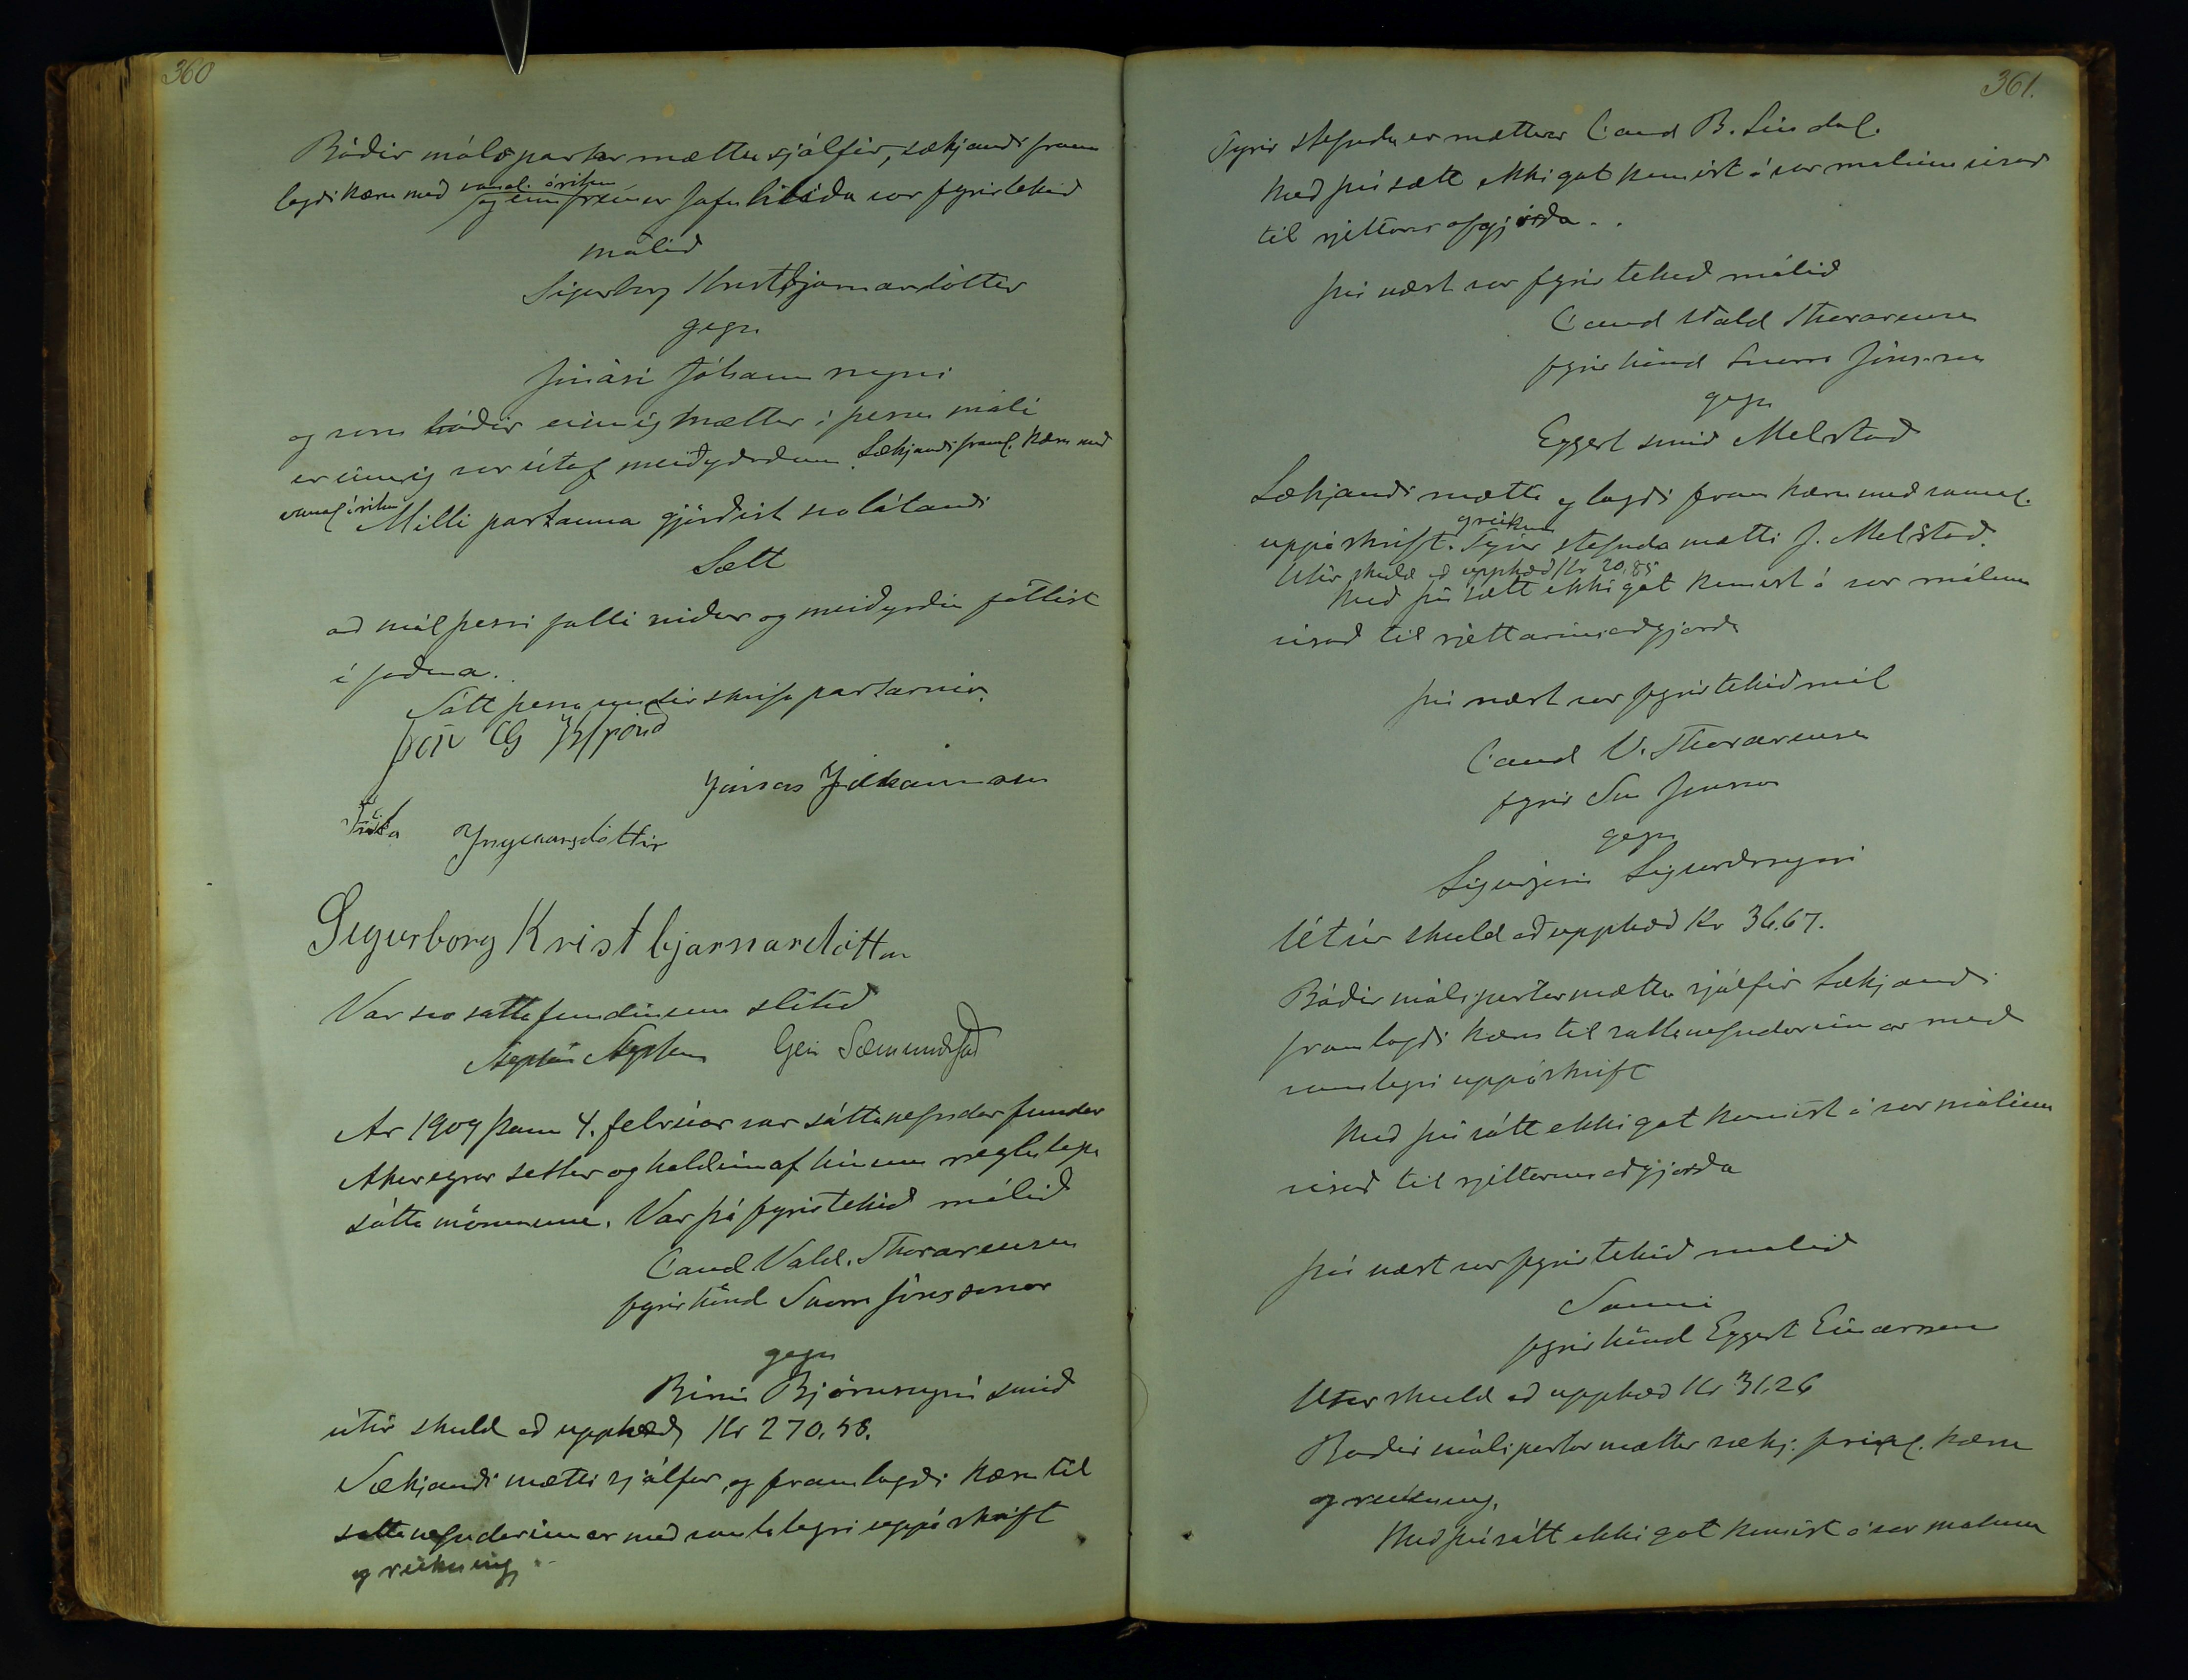 360
Báðir málspartar mættu sjálfir, sækjandi fram
lagði kæru með vanal. áritun og enn fremur jafnhliða var fyrirtekið
málið
Sigurborg Kristbjarnardóttir
gegn
Jónasi Jóhannssyni
og sem báðir einnig mættu í þessu máli
er einnig var útaf meiðyrðum. Sækjandi framl. kæru með
vanal áritun Milli partanna gjörðist svolátandi
Sætt
að mál þessi falli niður og meiðyrðin fallist
í faðma.
Sátt þessa undirskrifa partarnir.
Jónas Jóhannsson
Yngvarsdóttir
Sigurborg Kristbjarnardóttir
Var svo sáttafundinum slitið
Stephán Stephensen Geir Sæmundsson
Ár 1909 þann 4. febrúar var sáttanefndarfundur
Akureyrar settur og haldinn af hinum reglulegu
sáttamönnum. Var þá fyrirtekið málið
Cand Vald. Thorarensen
fyrir hönd Snorra Jónssonar
gegn
Birni Björnssyni smið
útúr skuld að upphæð Kr 270,58.
Sækjandi mætti sjálfur, og framlagði kæru til
sáttanefndarinnar með vanalegri uppáskrift
og reikning.
361.
Fyrir stefnda er mættur Cand B. Líndal.
Með því sætt ekki gat komist á var málinu vísað
til rjettarins aðgjörða.
Því næst var fyrirtekið málið
Cand Vald Thorarensen
fyrir hönd Snorra Jónssonar
gegn
Eggert smið Melstað
Sækjandi mætti og lagði fram kæru með vanal.
uppáskrift. og reikning Fyrir stefnda mætti J. Melstað.
Útúr skuld að upphæð Kr 20,85
Með því sætt ekki gat komist á var málinu
vísað til rjettarins aðgjörða
Því næst var fyrirtekið mál
Cand V. Thorarensen
fyrir Sn Jónsson
gegn
Sigurjóni Sigurðssyni
Útúr skuld að upphæð Kr 36.67.
Báðir málspartar mættu sjálfir Sækjandi
framlagði kæru til sáttanefndarinnar með
vanalegri uppáskrift
Með því sátt ekki gat komist á var málinu
vísað til rjettarins aðgjörða
Því næst var fyrirtekið málið
Sami
fyrir hönd Eggert Einarsson
Útúr skuld að upphæð Kr 31.26
Báðir málspartar mættu sækj. framl. kæru
og reikning.
Með því sátt ekki gat komist á var málinu